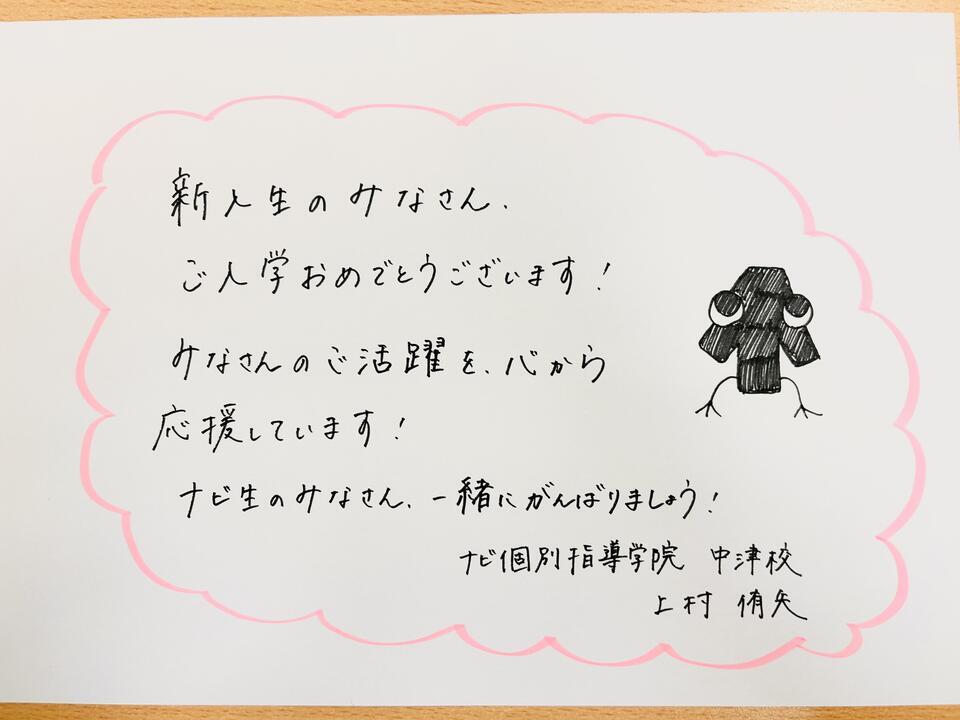 新入生のみなさん、
ご入学おめでとうございます！
みなさんのご活躍を、心から
応援しています！
ナビ生のみなさん、一緒にがんばりましょう！
ナビ個別指導学院 中津校
上村 侑矢